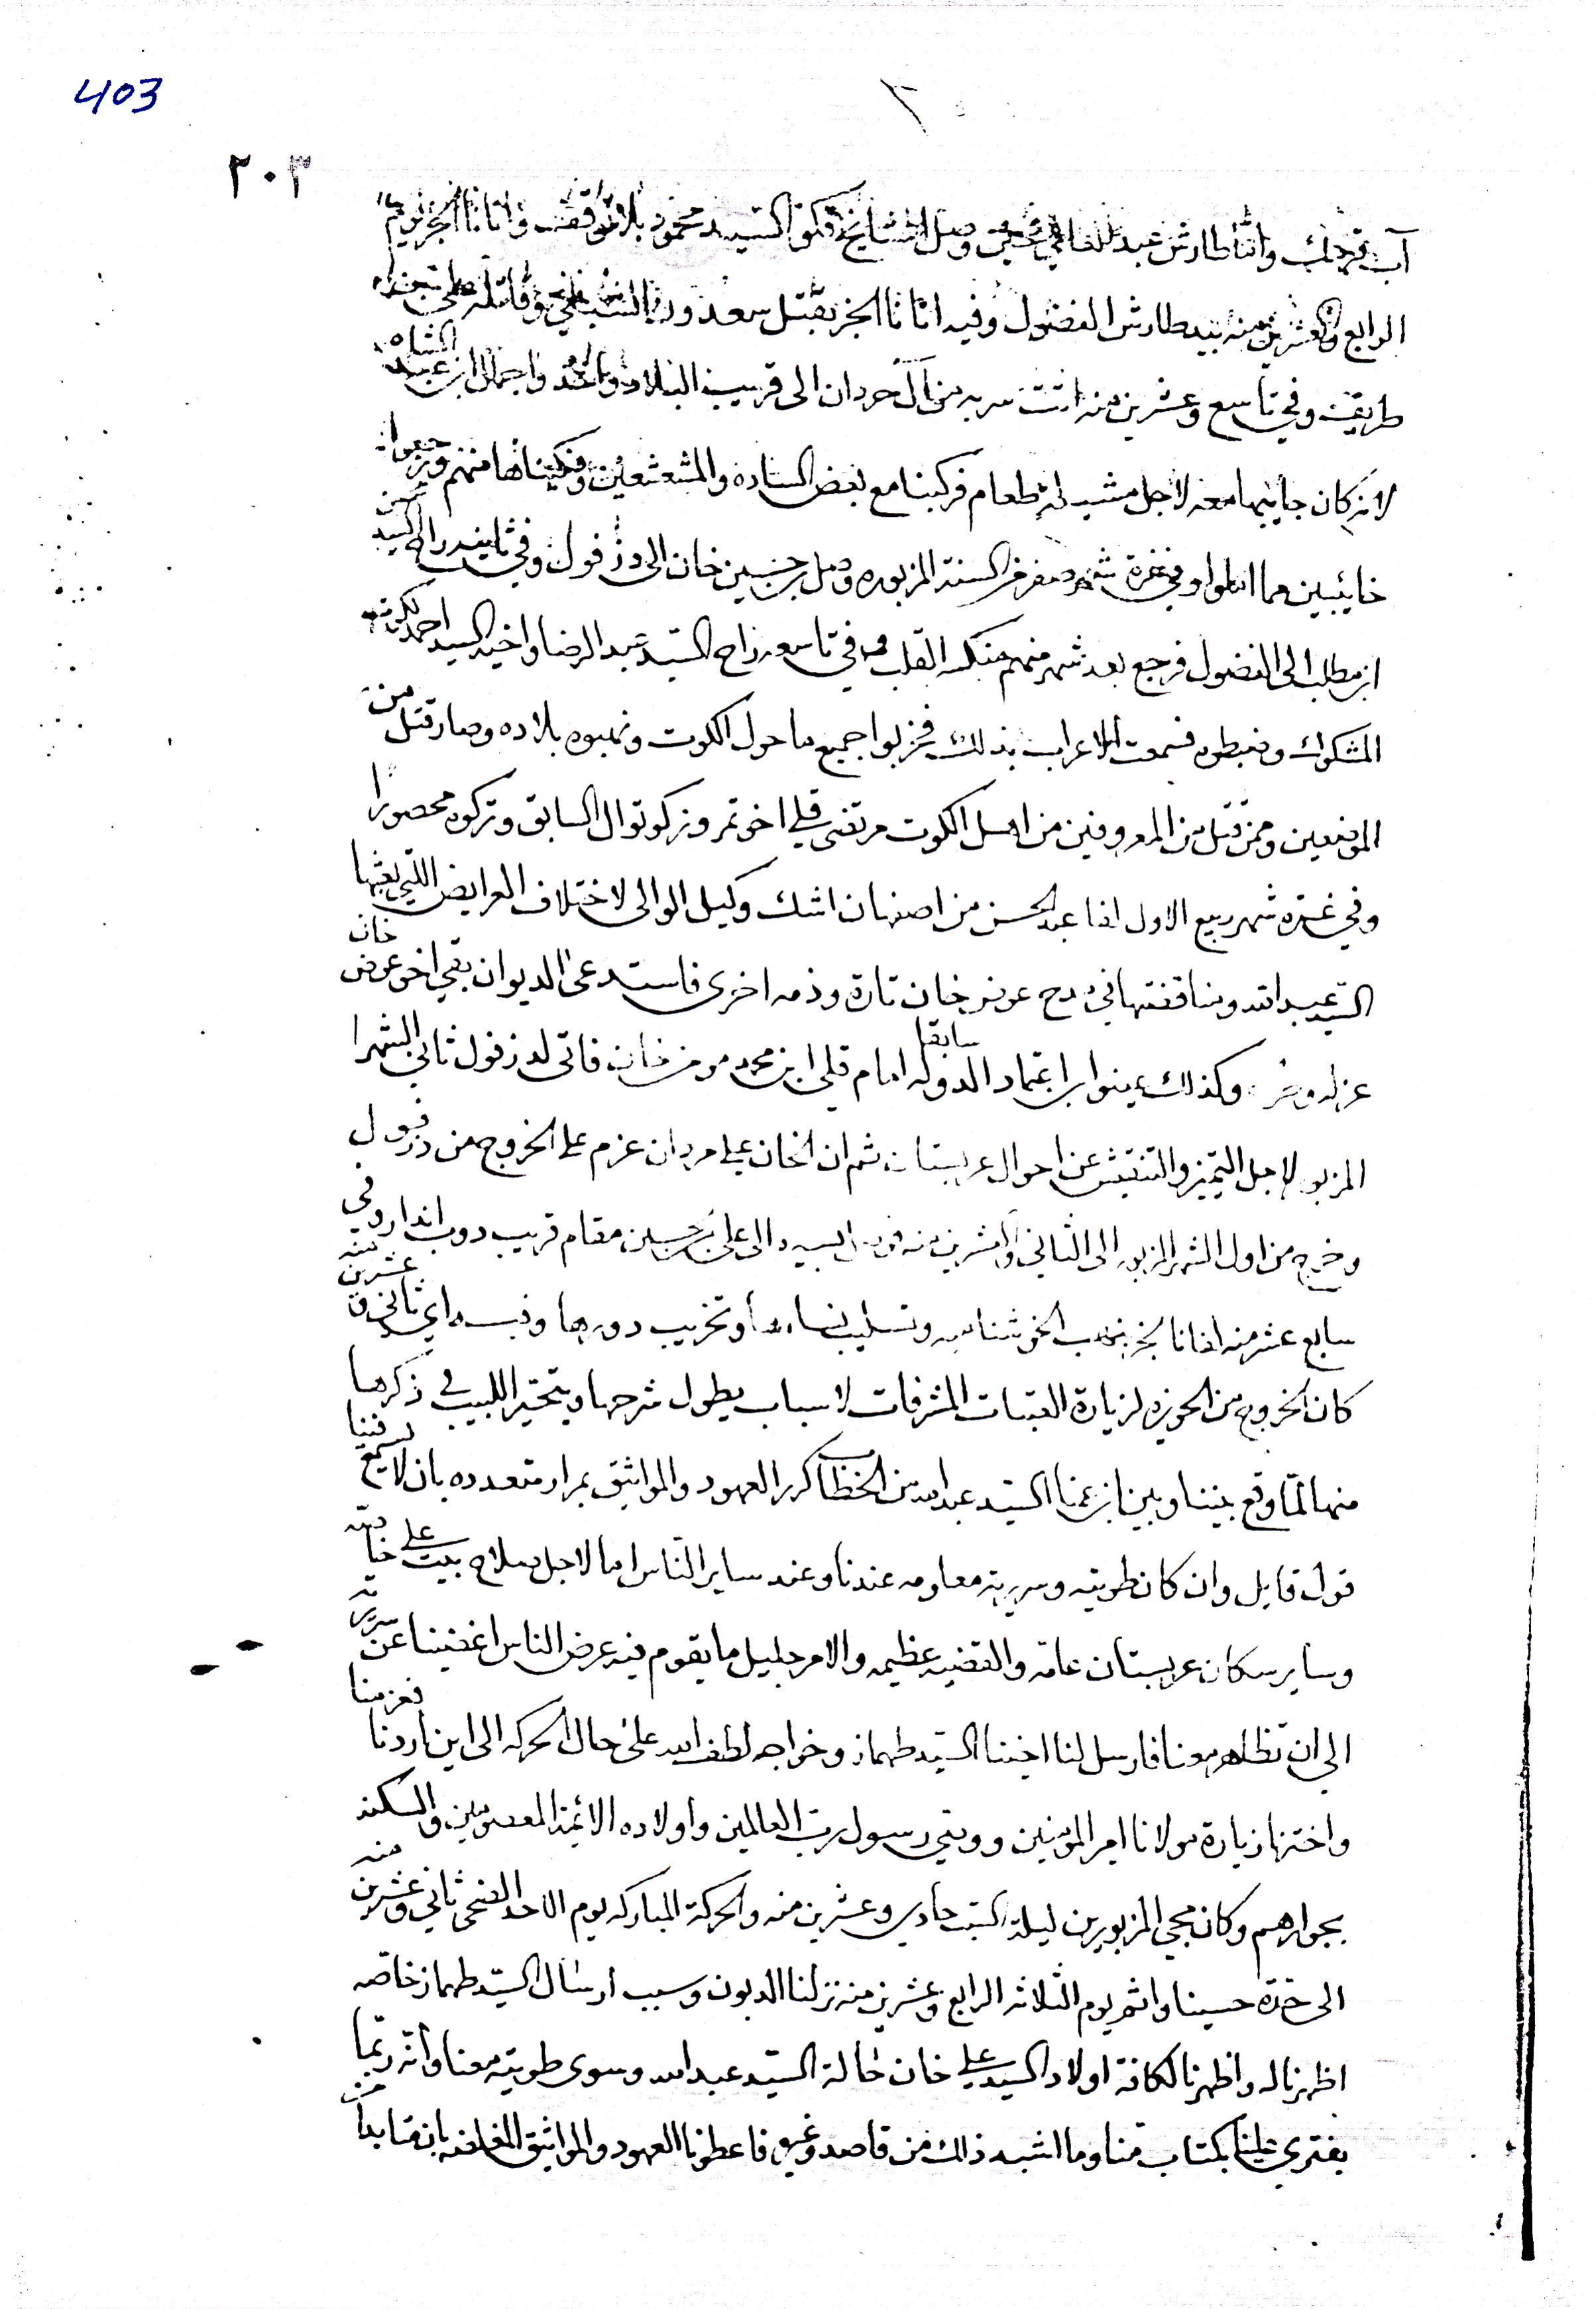 403
٢٠٣
وصل المشايخ السيد محمود بلا توقف واتانا الخبر يوم
الرابع والعشرين منه بيد طارش الفضول وفيه اتانا الخبر بقتل سعدون
طريقه وفي تاسع وعشرين منه اتت سربه من ال حردان الى قريب البلاد واخذوا جمال ابن عبد الشاه
لانه كان جايبها معه لاجل مشيله طعام فركبنا مع بعض الساده والمشعشعين وفكيناها منهم ورجعوا
خايبين مما املوا وفي غرة شهر صفر من السنة المزبوره وصل حسين خان الى دزفول وفي ثانيه راح السيد
ابن مطلب الى الفضول فرجع بعد شهر منهم منكسر القلب وفي تاسعه راح السيد عبد الرضا واخيه السيد احمد
المشكوك وضبطوه فسمعت الاعراب بذلك فخربوا جميع ما حول الكوت ونهبوه بلاده وصار قتل من
الموضعين وممن قتل من المعروفين من اهل الكوت مرتضى قلي اخو تمروز كوتوال السابق وتركوه محصورا
وفي غره شهر ربيع الاول لفا عبد الحسن من اصفهان اشك وكيل الوالى لاختلاف العرايض اللتي بعثها
السيد عبد الله ومناقضتها في مدح عوض خان تارة وذمه اخرى فاستدعى الديوان بقي اخو عوض خان
عزله وكذلك عينوا ابن اعتماد الدوله سابقا امام قلي ابن محمد مومن خان فاتى لدزفول ثاني الشهر
المزبور لاجل التميز والتفتيش عن احوال عربستان ثم ان الخان علي مردان عزم على الخروج من دزفول
وخرج من اول الشهر المزبور الى الثاني والعشرين منه مقام قريب دوب اندار وفي
سابع عشر منه لفانا الخبر بنهب الخوشناميه وتسليب نساءها وتخريب دورها وفيه اي ثاني وعشرين منه
كان الخروج من الحويزه لزيارة العتبات المشرفات لاسباب يطول شرحها ويتحير اللبيب في ذكرها
منها لما وقع بيننا وبين ابن عمنا السيد عبد الله من الخطا كرر العهود والمواثيق بمرار متعدده بان لا يسمع فينا
قول قايل وان كان طويته وسريرته معلومه عندنا وعند ساير الناس اما لاجل صلاح بيت علي خاصه
وساير سكان عربستان عامه والقضيه عظيمه والامر جليل ما يقوم فيه عرض الناس اغضينا عن سريرته
الى ان تظاهر معنا فارسل لنا اخينا السيد طهماز وخواجه لطف الله على حال الحركه الى اين اردنا فعزمنا
واخترنا زيارة مولانا امير المؤمنين ووصي رسول رب العالمين واولاده الائمة المعصومين والسكنه
بجوارهم وكان مجي المزبورين ليلة السبت حادي وعشرين منه والحركة المباركه يوم الاحد الضحى ثاني وعشرين منه
الى حسينا واثم يوم الثلاثه الرابع وعشرين منه نزلنا الدبون وسبب ارسال السيد طهماز خاصه
اظهرنا له واظهرنا لكافة اولاد السيد علي خان حالة السيد عبد الله وسوى طويته معنا وانه ربما
يفتري علينا بكتاب منا وما اشبه ذلك من قاصد وغيره فاعطونا العهود والمواثيق المغلظه بان ما بدا من